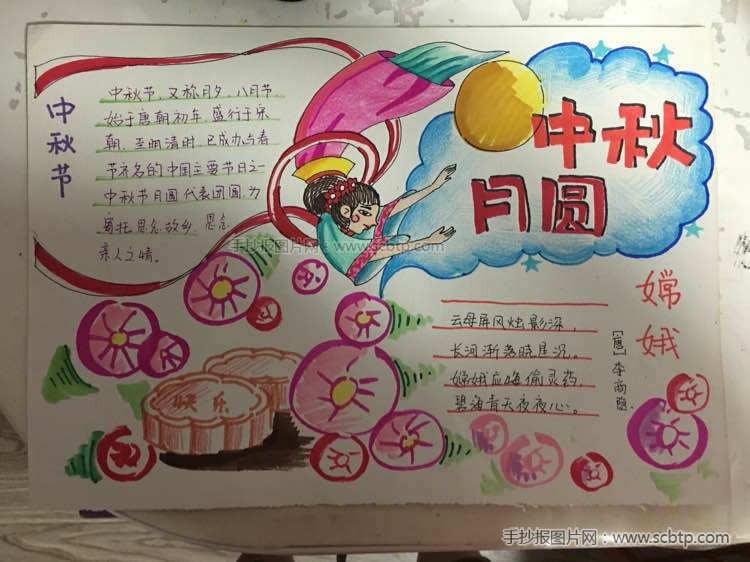 中秋节
中秋节,又称月夕、八月节
始于唐朝初年,盛行于宋
朝,至明清时,已成为与春
节齐名的中国主要节日之一
中秋节月圆代表团圆,为
寄托思念故乡,思念
亲人之情。
中秋
月圆
手抄报图片网:www.scbtp.com
嫦娥
[唐]李商隐
云母屏风烛影深,
长河渐落晓星沉。
嫦娥应悔偷灵药,
碧海青天夜夜心。
快乐
手抄报图片网:www.scbtp.com